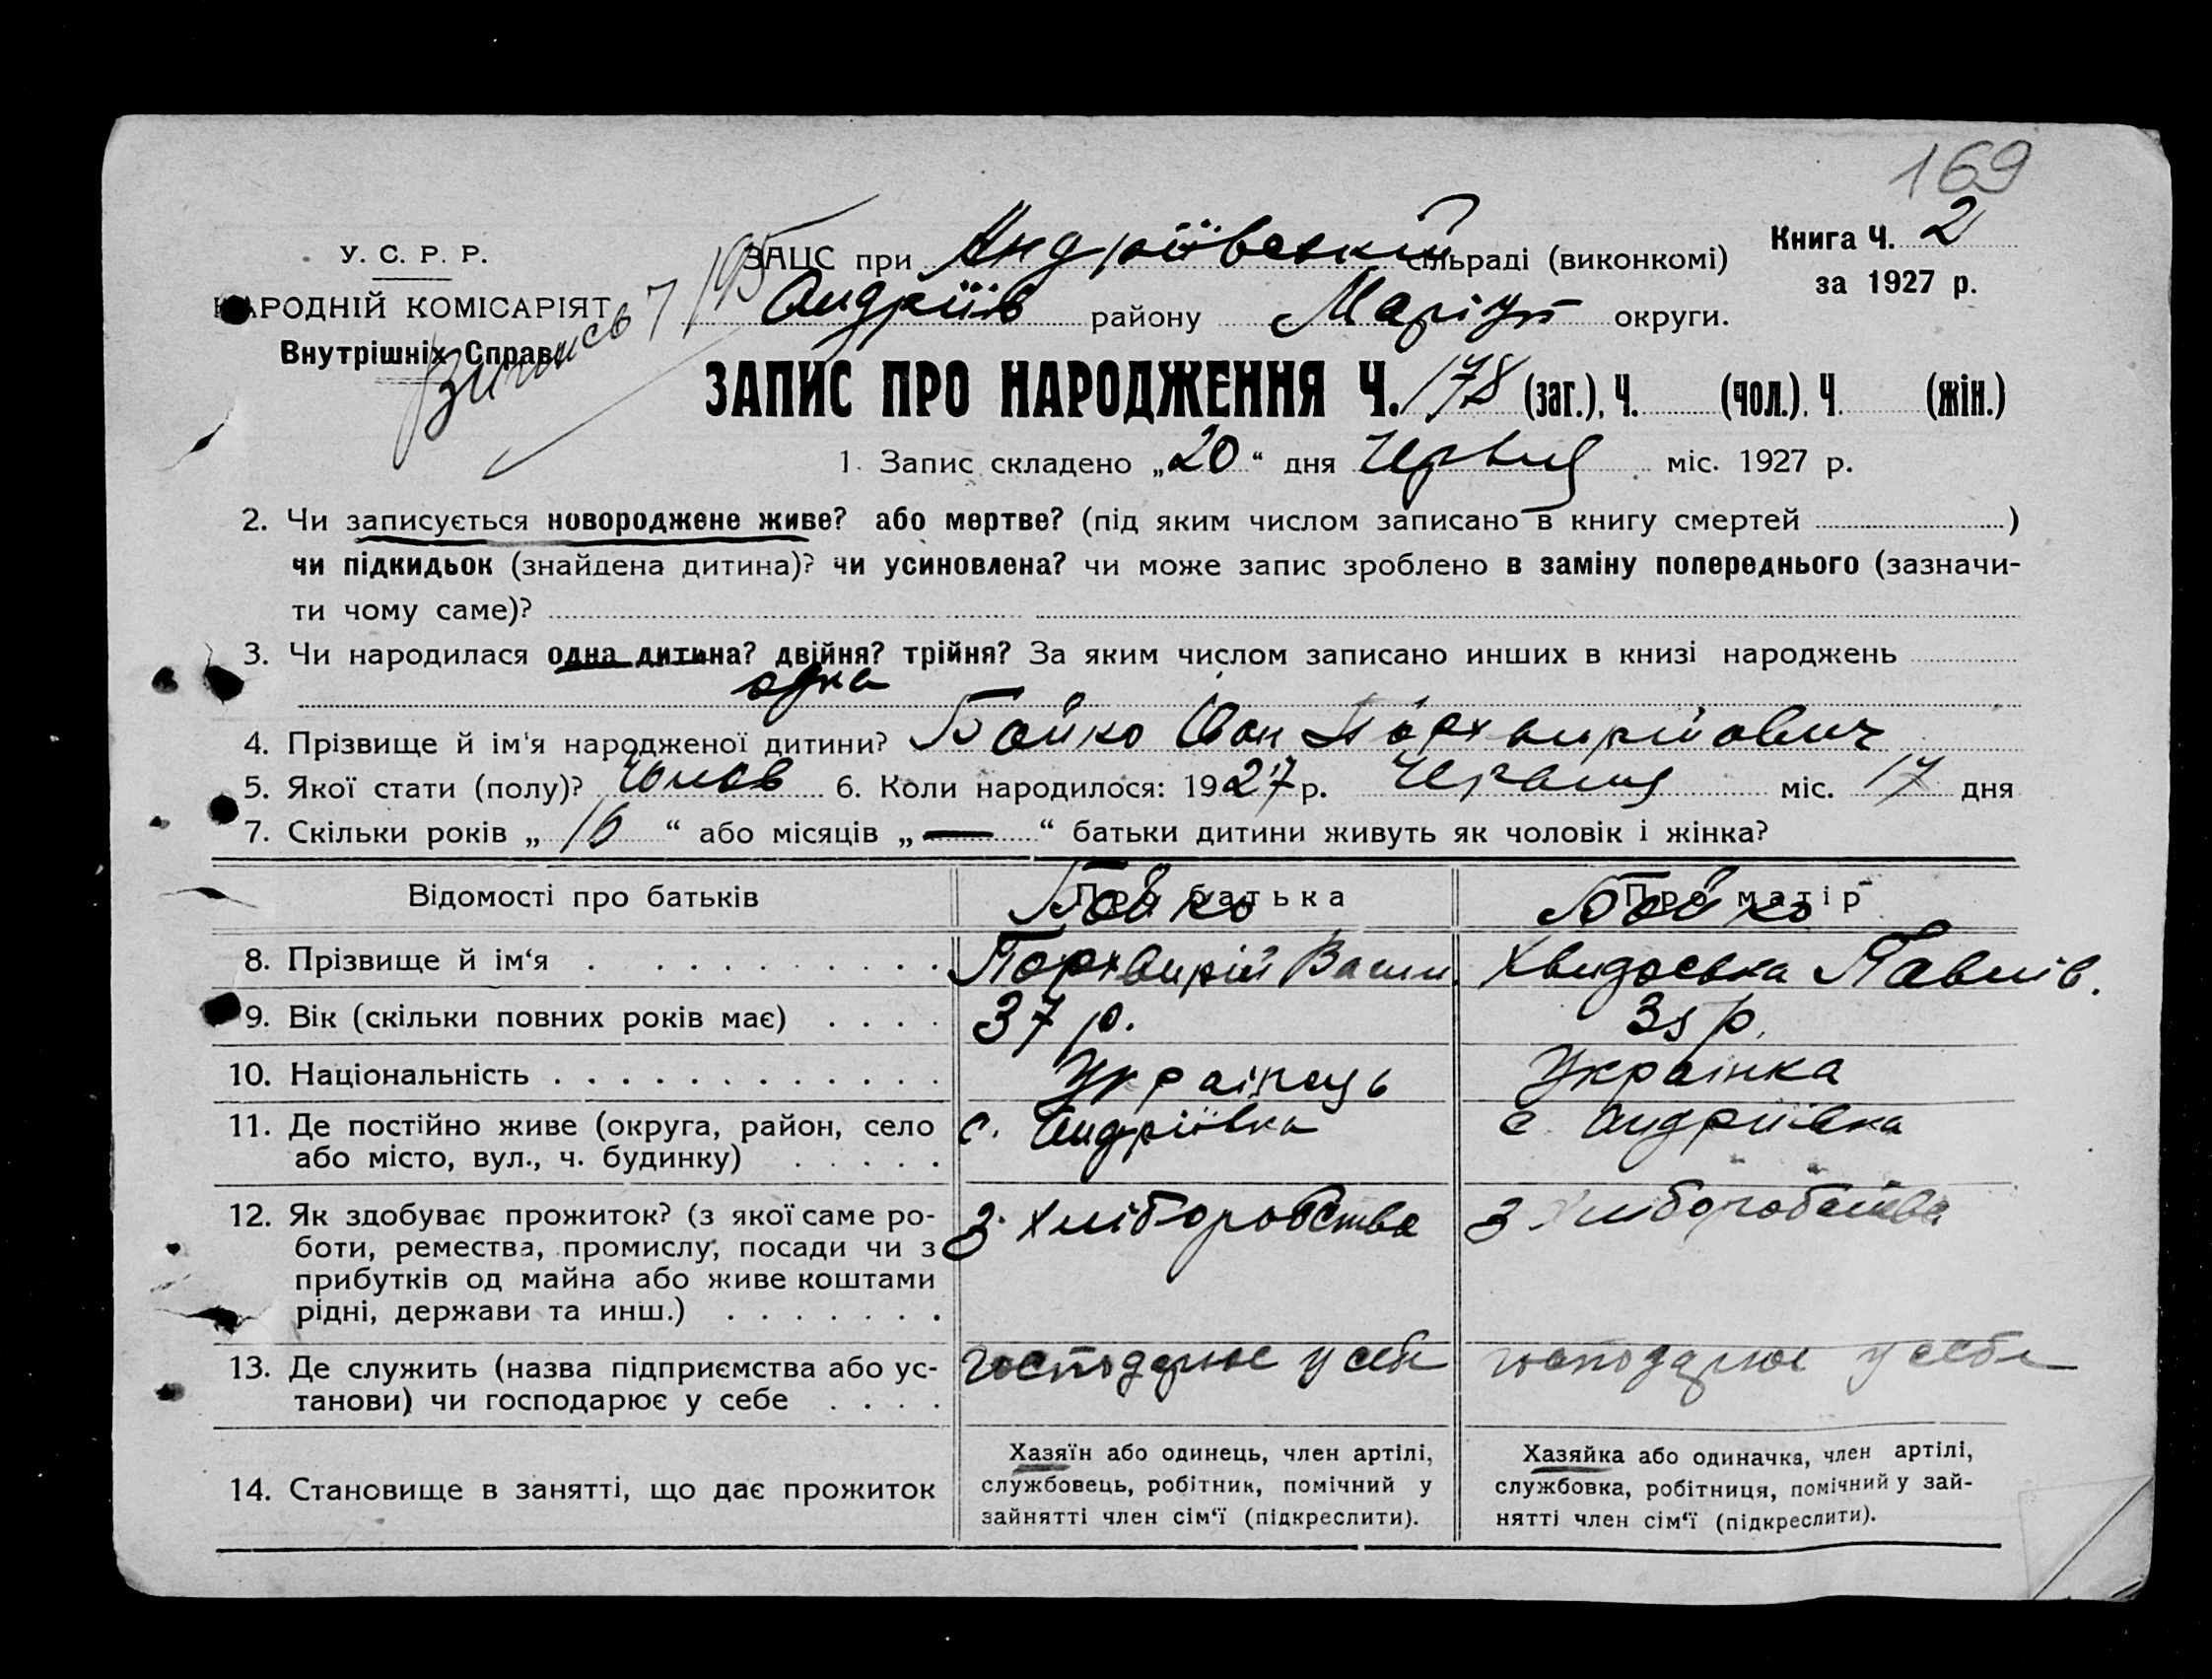 169
У. С. Р. Р.
ЗАЦС при Андріївській сільраді (виконкомі)
Книга Ч. 2
за 1927 р.
НАРОДНІЙ КОМІСАРІЯТ
Андріїв району Маріуп округи.
Внутрішніх Справ
ЗАПИС ПРО НАРОДЖЕННЯ Ч. 178 (заг.), Ч. (чол.), Ч. (жін.)
1. Запис складено „20“ дня Червня міс. 1927 р.
2. Чи записується новороджене живе? або мертве? (під яким числом записано в книгу смертей )
чи підкидьок (знайдена дитина)? чи усиновлена? чи може запис зроблено в заміну попереднього (зазначи-
ти чому саме)?
3. Чи народилася одна дитина? двійня? трійня? За яким числом записано инших в книзі народжень
одна
4. Прізвище й ім'я народженої дитини? Бойко Іван Порхвирійович
5. Якої стати (полу)? чолов 6. Коли народилося: 1927 р. Червня міс. 17 дня
7. Скільки років „16“ або місяців „—“ батьки дитини живуть як чоловік і жінка?
Відомості про батьків
Про батька
Про матір
Бойко
Бойко
8. Прізвище й ім‘я
Порхвирій Васил.
Хведоська Павлів.
9. Вік (скільки повних років має)
37 р.
35 р.
10. Національність
Українець
Українка
11. Де постійно живе (округа, район, село
або місто, вул., ч. будинку)
с. Андріївка
с. Андріївка
12. Як здобуває прожиток? (з якої саме ро-
боти, ремества, промислу, посади чи з
прибутків од майна або живе коштами
рідні, держави та инш.)
З хліборобства
З хліборобства
13. Де служить (назва підприємства або ус-
танови) чи господарює у себе
господарює у себе
господарює у себе
14. Становище в занятті, що дає прожиток
Хазяїн або одинець, член артілі,
службовець, робітник, помічний у
зайнятті член сім‘ї (підкреслити).
Хазяйка або одиначка, член артілі,
службовка, робітниця, помічний у зай-
нятті член сім‘ї (підкреслити).